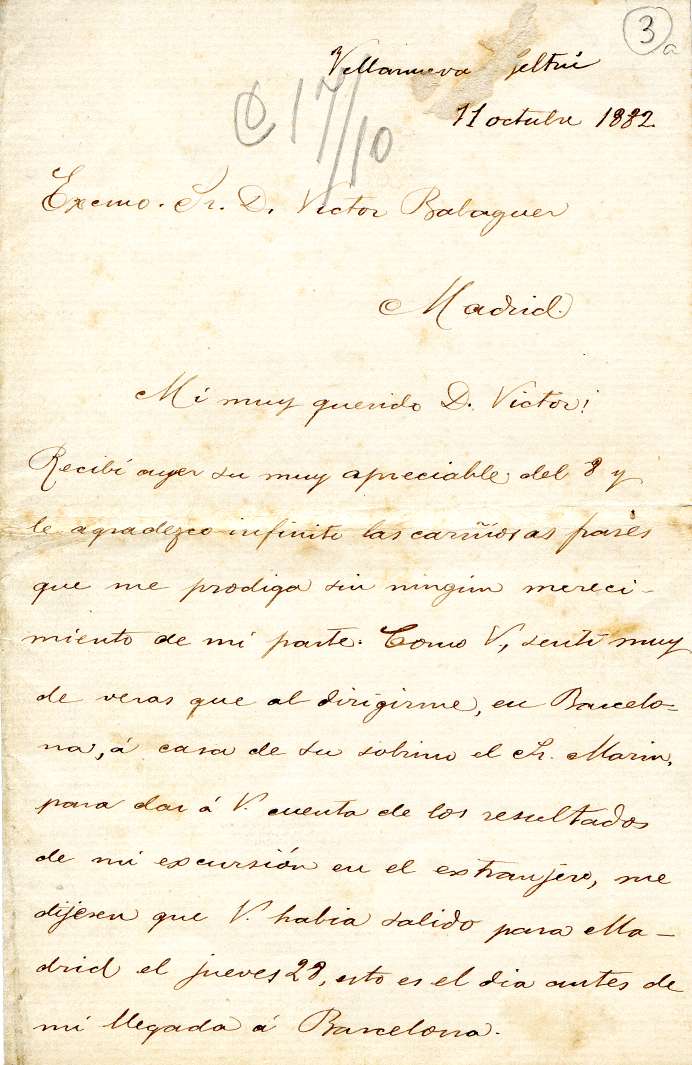 3
a
Villanueva Geltrú
C 17/10
11 octubre 1882.
Excmo. Sr. D. Victor Balaguer
Madrid.
Mi muy querido D. Victor:
Recibí ayer su muy apreciable del 8 y
le agradezco infinito las cariñosas frases
que me prodiga sin ningún mereci-
miento de mi parte. Como V., sentí muy
de veras que al dirigirme, en Barcelo-
na, á casa de su sobrino el Sr. Marin,
para dar á V. cuenta de los resultados
de mi excursión en el extranjero, me
dijesen que V. habia salido para Ma-
drid el jueves 28, esto es el dia antes de
mi llegada á Barcelona.